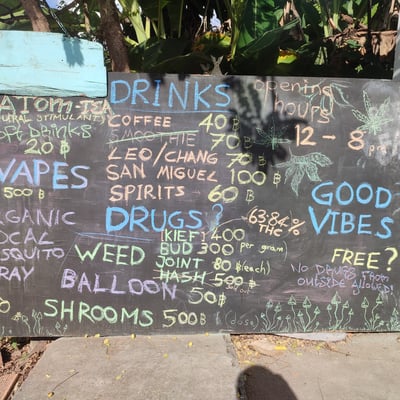 DRINKS
COFFEE 40฿
SMOOTHIE 70฿
LEO/CHANG 70฿
SAN MIGUEL 100฿
SPIRITS 60฿
DRUGS?
WEED
[KIEF] 400
BUD 300 per gram)
JOINT 80฿(each)
HASH 500฿
63.84%
THC
BALLOON 50฿
SHROOMS 500฿ (dose)
ATOM-TEA
URAL STIMULANTS)
OFT DRINKS
20฿
VAPES
500฿
RGANIC
OCAL
OSQUITO
RAY
opening
hours
12 - 8 pm
GOOD
VIBES
FREE?
NO DRUGS from
outside allowed!